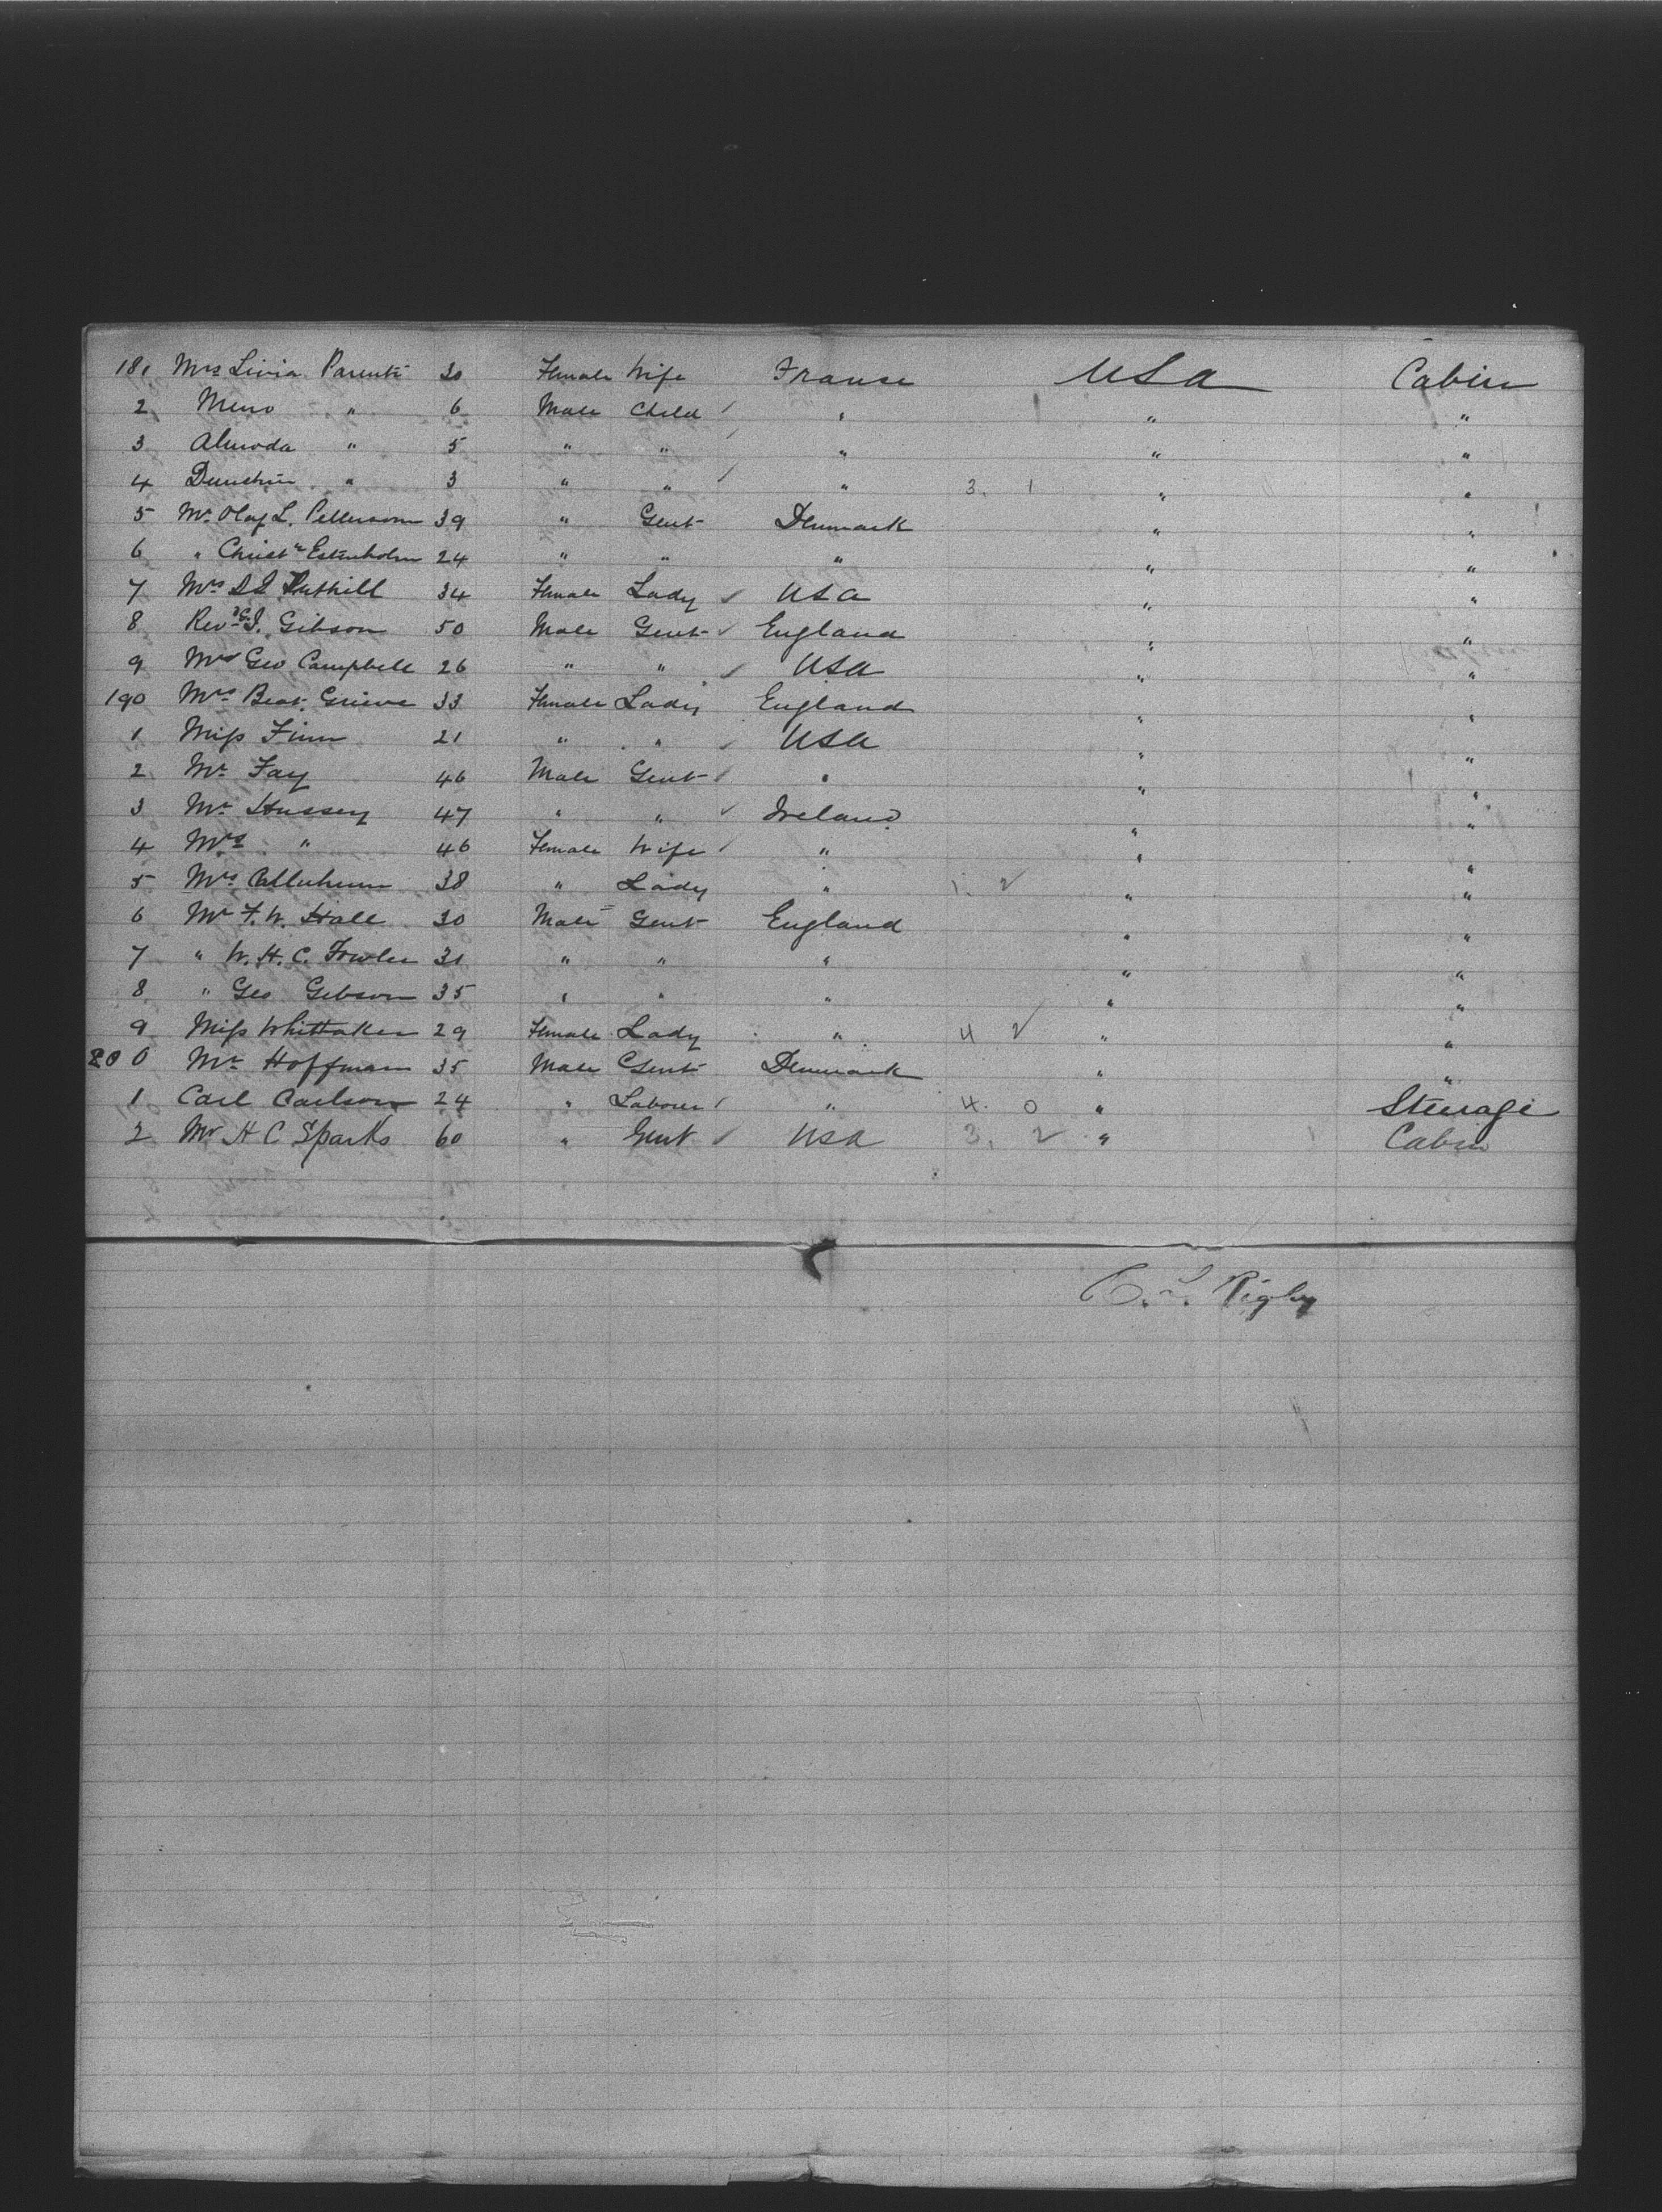 181 Mrs Livia Parenti 30 Female Wife France USA Cabin
2 Meno " 6 Male Child / " " "
3 Almoda " 5 " " / " " "
4 " 3 " " / " 3. 1 " "
5 Mr Olaf L. Pettersom 39 " Gent Denmark " "
6 " Christn Estenholm 24 " " " " "
7 Mrs Tuthill 34 Female Lady ✓ USA " "
8 Revd G. J. Gibson 50 Male Gent ✓ England " "
9 Mr Geo Campbell 26 " " ✓ USA " "
190 Mrs Beat. Grieve 33 Female Lady England " "
1 Miss Finn 21 " " ✓ USA " "
2 Mr Fay 46 Male Gent ✓ " " "
3 Mr Hussey 47 " " ✓ Ireland " "
4 Mrs " 46 Female Wife / " " "
5 Mrs 38 " Lady " 1. 2 " "
6 Mr F. W. Hall 30 Male Gent England " "
7 " W. H. C. Fowler 31 " " " " "
8 " Geo Gibson 35 " " " " "
9 Miss Whittaker 29 Female Lady " 4 2 " "
200 Mr Hoffman 35 Male Gent Denmark " "
1 Carl Carlson 24 " Labourer / " 4. 0 " Steerage
2 Mr H C Sparks 60 " Gent ✓ USA 3. 2 " Cabin
Rigby